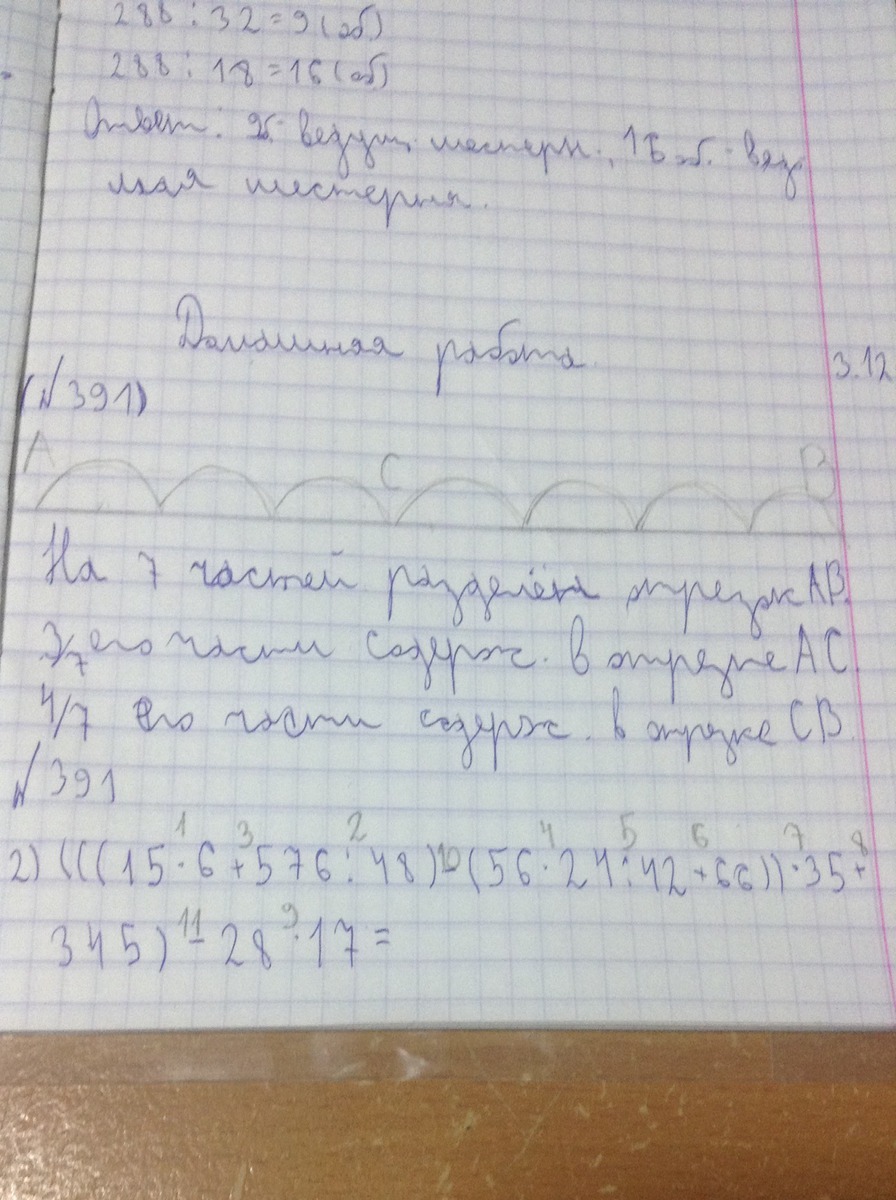 288 : 32 = 9 (об)
288 : 18 = 16 (об)
Ответ: 9об. ведущ. шестерн., 16 об. -
мая шестерня.
Домашняя работа.
3.12
(№391)
A C B
На 7 частей разделён отрезок AB.
3/7 его части содерж. в отрезке AC.
4/7 его части содерж. в отрезке CB.
№391
1 3 2 4 5 6 7 8
2) (((15 · 6 + 576 : 48) 10 (56 · 24 : 42 + 66)) · 35 +
11 9
345) - 28 · 17 =